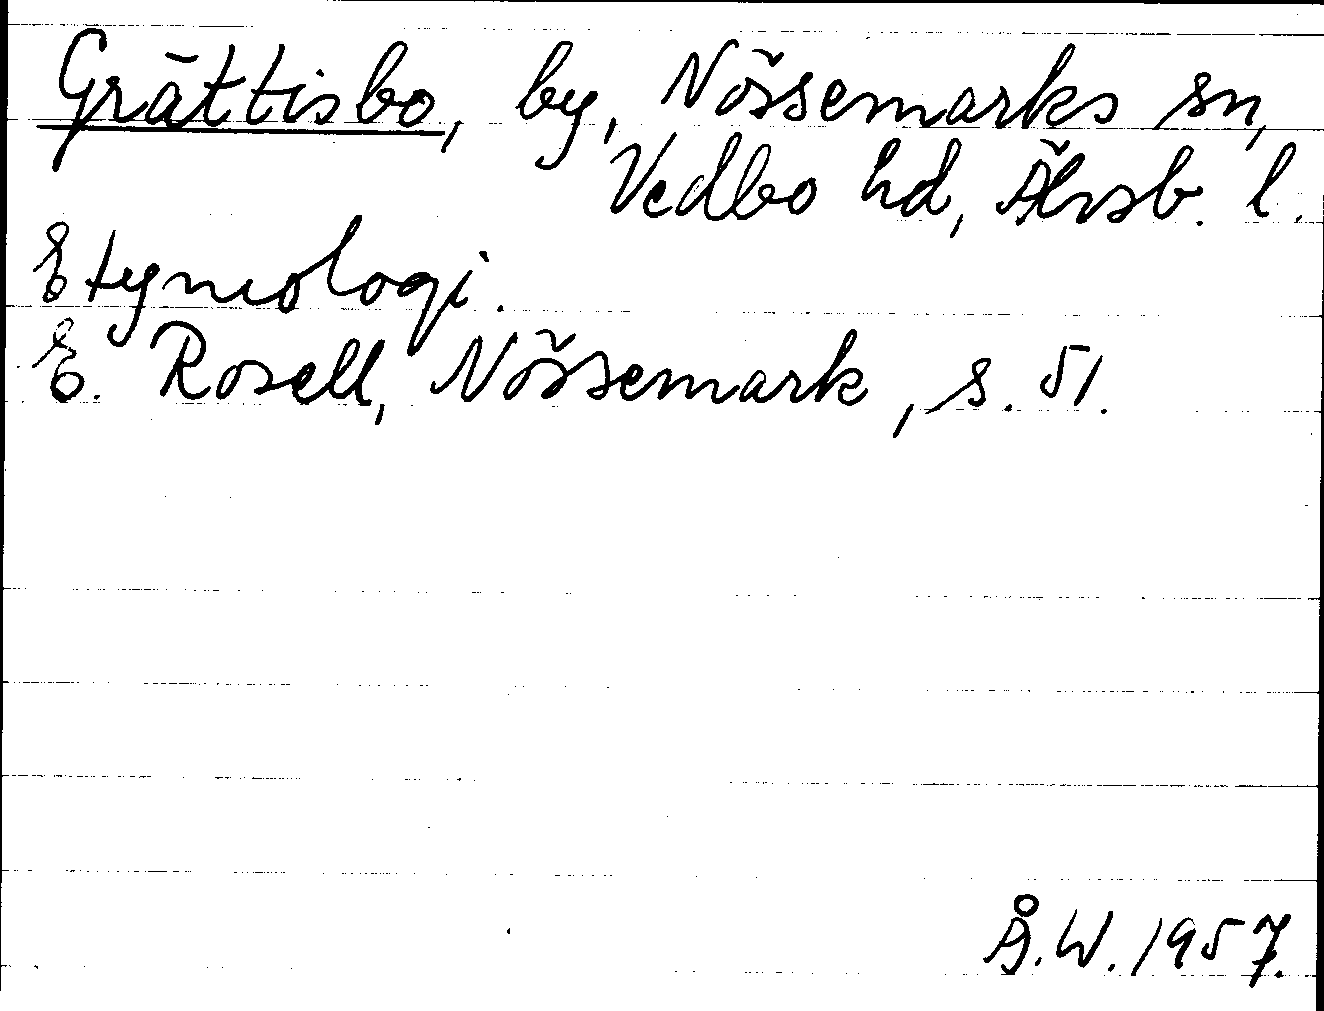 Grättisbo, by, Nössemarks sn,
Vedbo hd, Älvsb. l.
Etymologi.
E. Rosell, Nössemark, s. 51.
Å.W. 1957.